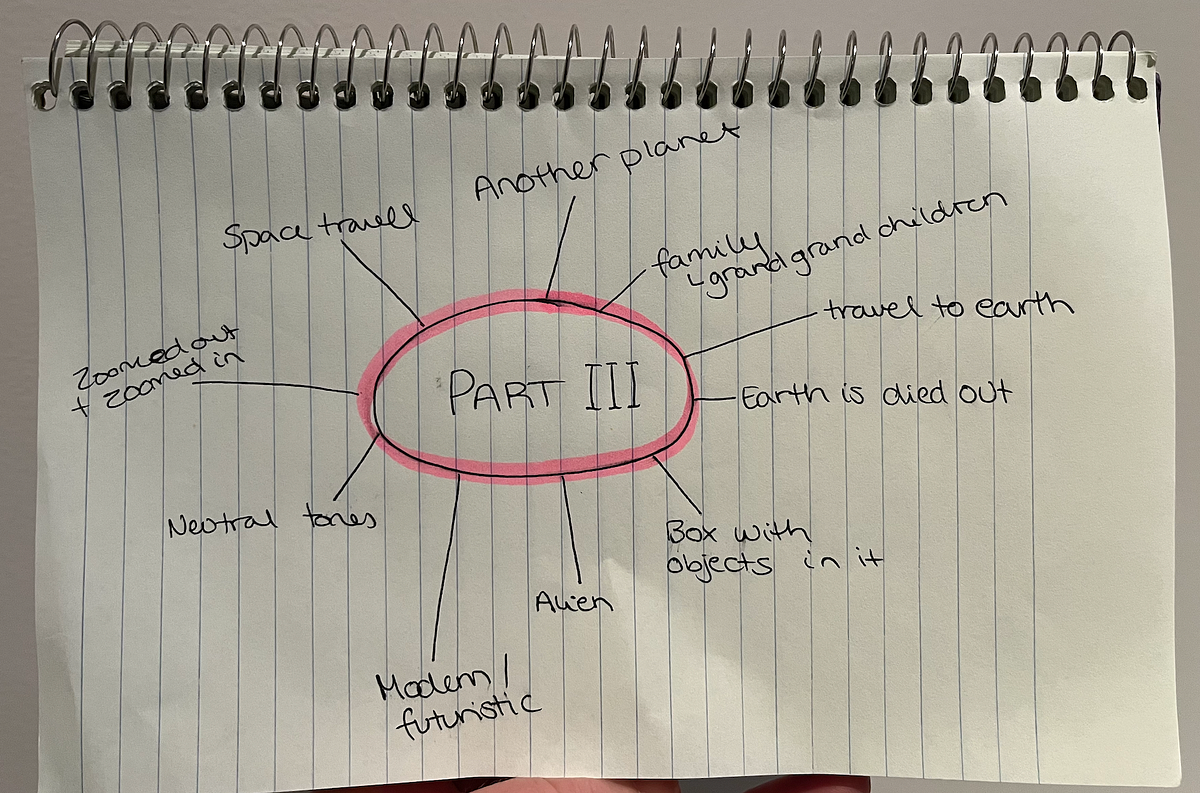 Another planet
Space travell
family
↳grand grand children
travel to earth
Zoomed out
+ zoomed in
PART III
Earth is died out
Neutral tones
Box with
objects in it
Alien
Modern/
futuristic